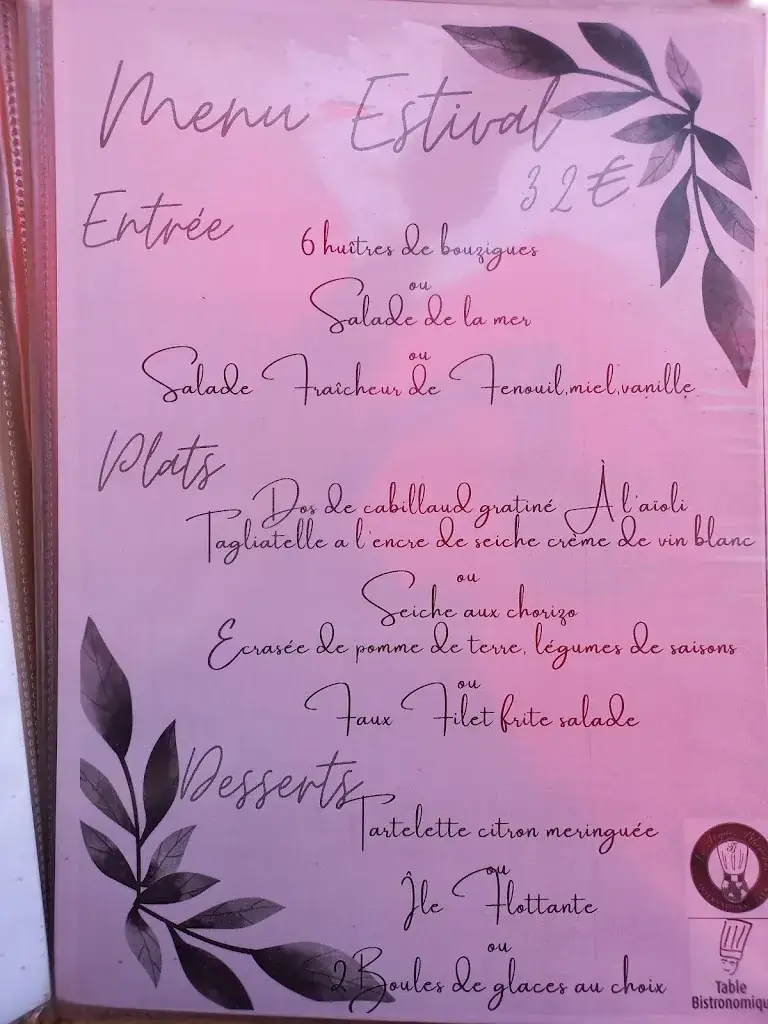 Menu Estival
32€
Entrée
6 huîtres de bouzigues
ou
Salade de la mer
ou
Salade Fraîcheur de Fenouil,miel,vanille
Plats
Dos de cabillaud gratiné À l'aïoli
Tagliatelle a l'encre de seiche crème de vin blanc
ou
Seiche aux chorizo
Ecrasée de pomme de terre, légumes de saisons
ou
Faux Filet frite salade
Desserts
Tartelette citron meringuée
ou
Île Flottante
ou
2 Boules de glaces au choix
Table
Bistronomiqu